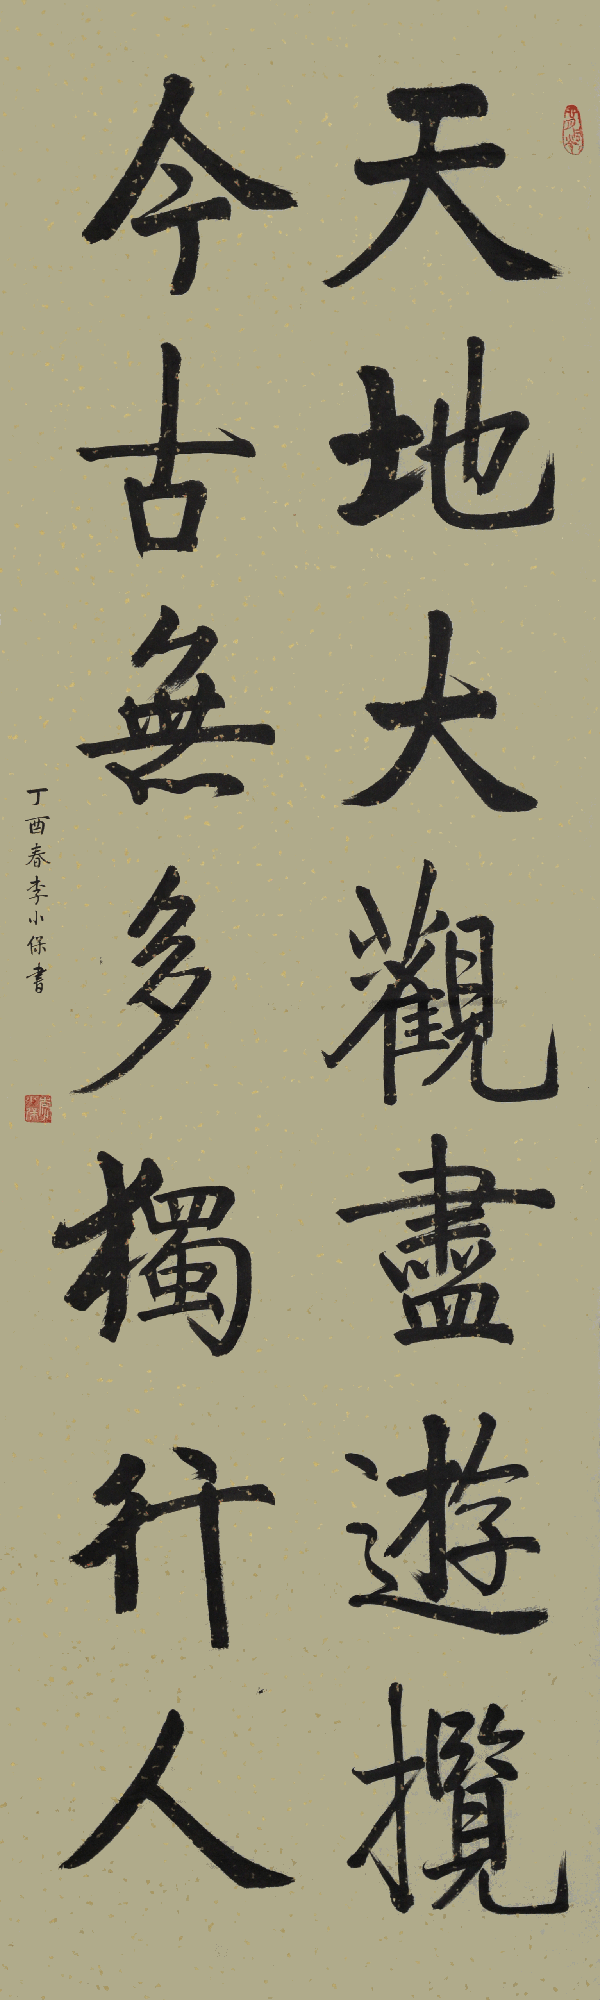 天地大觀盡遊攬
今古無多獨行人
丁酉春李小保書